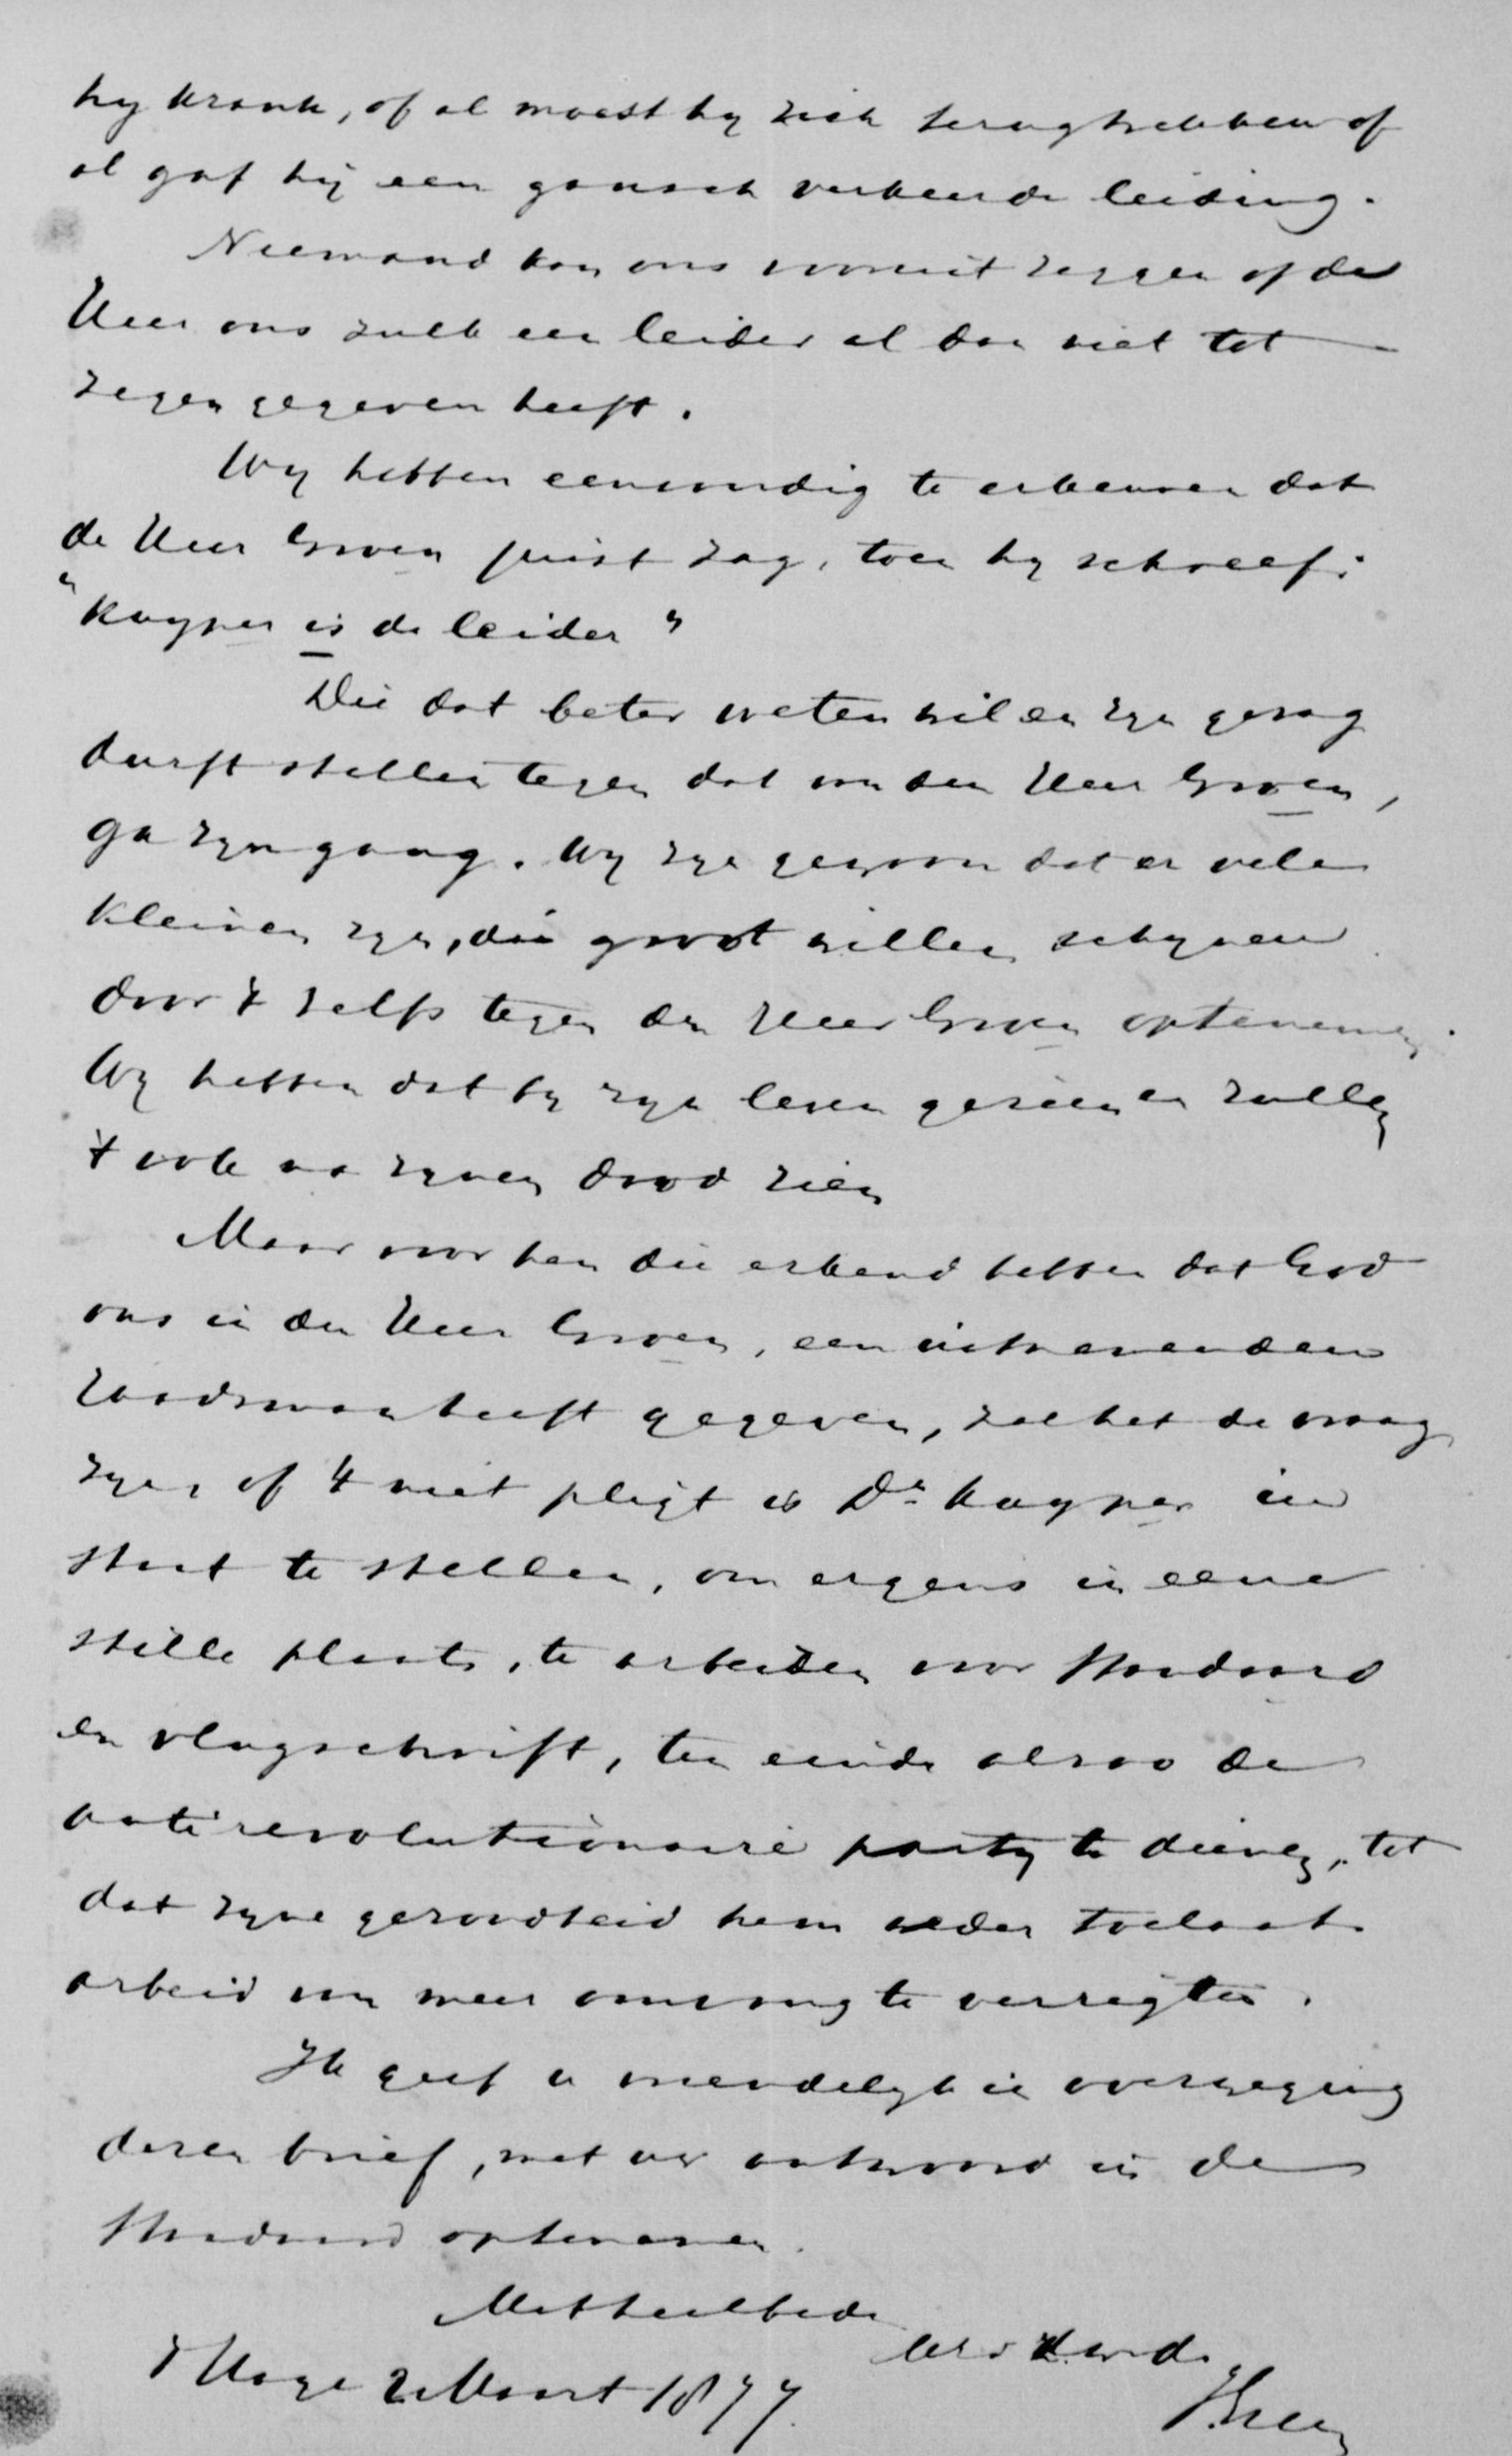 hy krank, of al moest hy zich terugtrekken of
al gaf hij een gansch verkeerde leiding.
Niemand kan ons vooruit zeggen of de
Heer ons zulk een leider al dan niet tot
zegen gegeven heeft.
Wy hebben eenvoudig te erkennen dat
de Heer Groen juist zag, toen hy schreef:
"Kuyper is de leider"
Die dat beter weten wil en zyn gezag
durft stellen tegen dat van den Heer Groen,
ga zyn gang. Wy zyn gewoon dat er vele
kleinen zyn, die groot willen schynen
door 't zelfs tegen den Heer Groen optenemen.
Wy hebben dat by zyn leven gezien en zullen
't ook na zynen dood zien
Maar voor hen die erkend hebben dat God
ons in den Heer Groen, een uitnemenden
raadsman heeft gegeven, zal het de vraag
zyn, of 't niet pligt is Dr Kuyper in
staat te stellen, om ergens in eene
stille plaats, te arbeiden voor Standaard
en vlugschrift, ten einde alzoo de
antirevolutionaire party te dienen, tot
dat zyne gezondheid hem weder toelaat
arbeid van meer omvang te verrigten.
Ik geef u vriendelyk in overweging
dezen brief, met uw antwoord in de
Standaard optenemen.
Met heilbede
's Hage 2 Maart 1877.